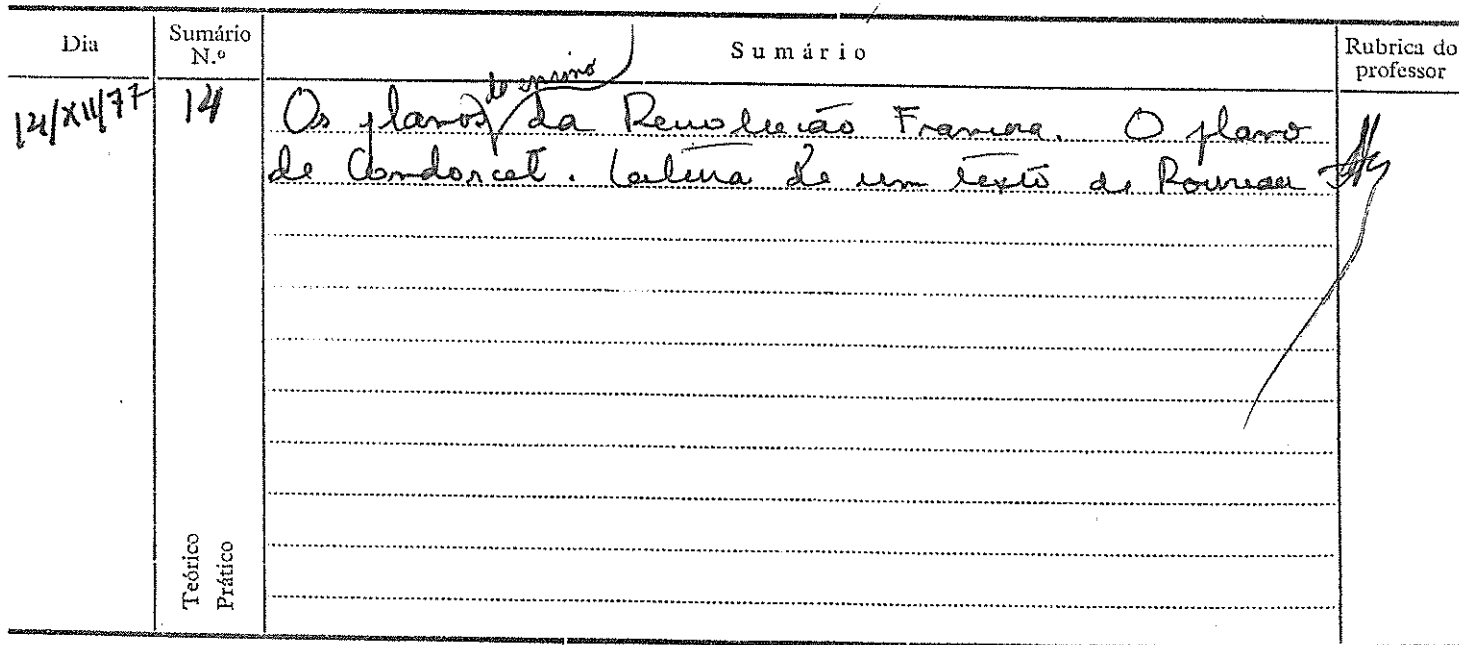 Dia
Sumário N.º
Sumário
Rubrica do professor
14/XII/77
14
de ensino
Os planos da Revolução Francesa. O plano
de Condorcet. Leitura de um texto de Rousseau
Teórico
Prático